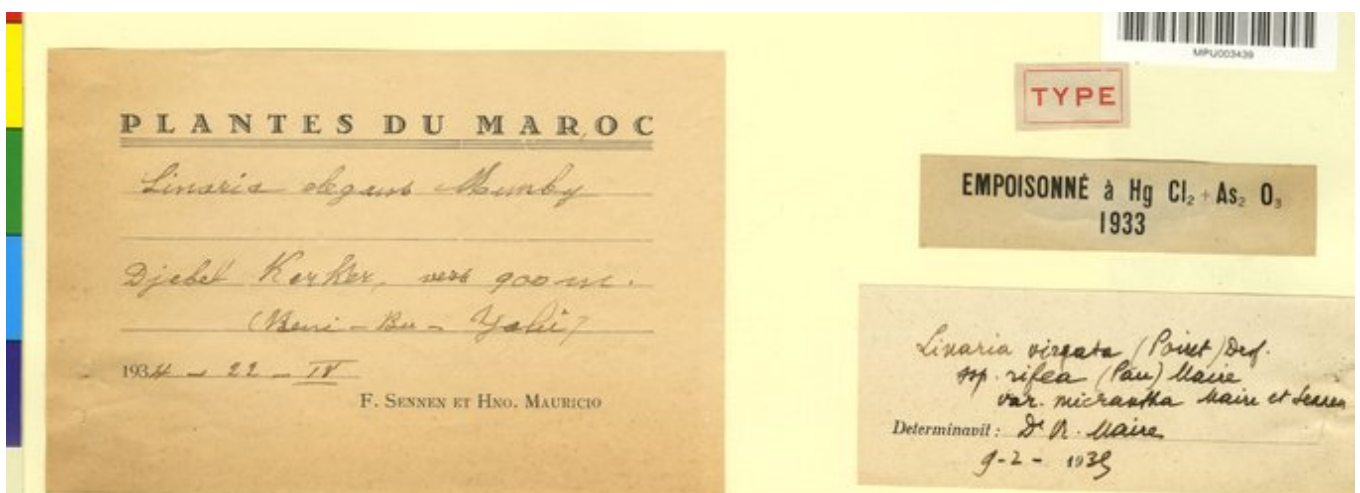 PLANTES DU MAROC
Linaria elegans Munby
Djebel Kerker, vers 900 m.
(Beni-Bu-Yahi)
1934 - 22 - IV
F. SENNEN ET HNO. MAURICIO
MPU003439
TYPE
EMPOISONNÉ à Hg Cl₂ + As₂ O₃
1933
Linaria virgata (Poiret) Desf.
ssp. rifea (Pau) Maire
var. micrantha Maire et Sennen
Determinavit: Dr R. Maire
9-2-1935